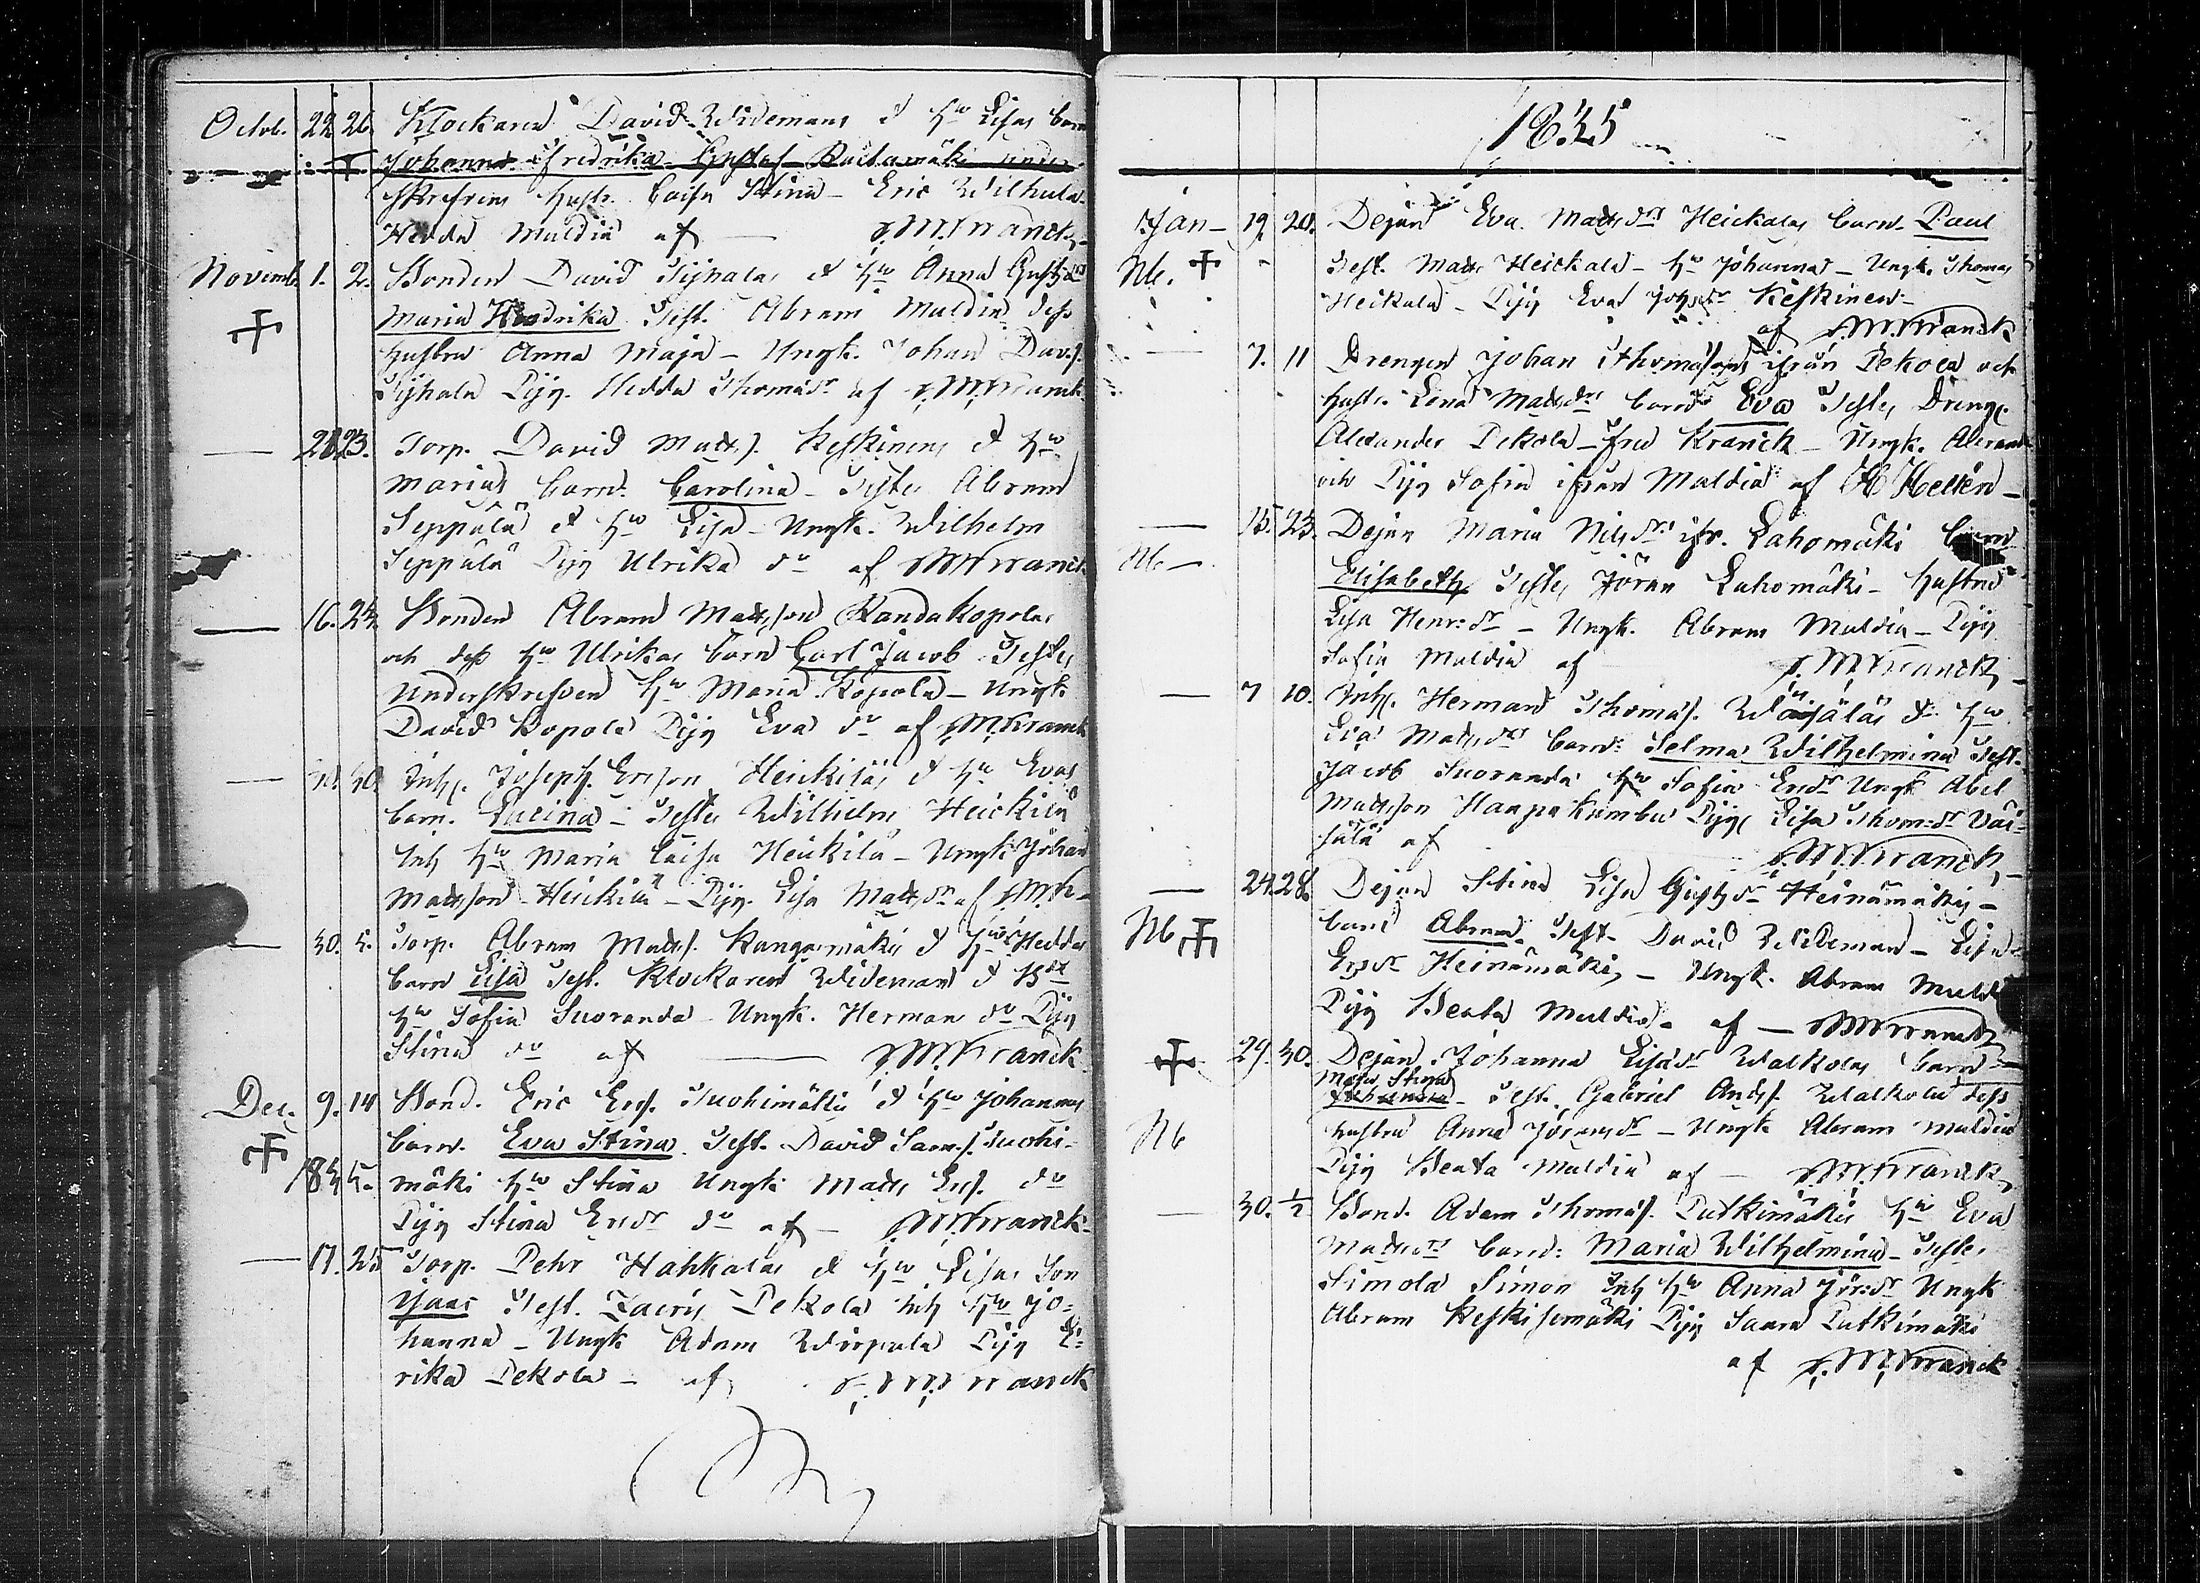 Octob. 22 26. Klockaren David Widemans & hu Lisas barn
Johanna Fredrika Gustaf Rautamäki under
skrefvens hustr. Caisa Stina - Eric Wilhula
Hedda Muldia af - J.M. Kranck
Novemb. 1. 2. Bonden David Sijhalas & hu Anna Gustafsdrs
Maria Hendrika Test. Abram Muldia dess
hustru Anna Maja - Ungk. Johan Davids.
Sijhala Pig. Hedda Thomasdr af J.M. Kranck
- 23. Torp. David Matts. Keskinens & hu
Marias barn: Carolina - Testes Abram
Seppälä & hu Lisa - Ungk. Wilhelm
Seppälä Pig Ulrika do af J.M. Kranck
- 16. 24. Bonden Abram Mattsson Kopolas
och dess hu Ulrikas barn Carl Jacob Testes
Underskrefven hu Maria Kopola - Ungk.
David Kopola Pig Eva do af J.M. Kranck
- 30. Inh. Joseph Ersson Heickiläs & hu Evas
barn. - Testes Wilhelm Heickilä
Inh hu Maria Caisa Heickilä - Ungk. Johan
Mattsson Heickilä - Pig. Lisa Mattsdr af J.M.K-
- 30. 5. Torp. Abram Matts. Kangasmäkis & hu Heddas
barn Lisa Test. Klockaren Wideman &
hu Sofia Suoranda Ungk. Herman do Pig
Stina do af - J.M. Kranck
Dec. 9. 14 Bond. Eric Ers. Suohimäkis & hu Johannas
barn. Eva Stina. Test. David Sam.s. Suohi-
mäki hu Stina Ungk. Matts Ers. do
Pig Stina Ersdr do af - J.M. Kranck
- 17. 25 Torp. Pehr Hahkalas & hu Lisas Son
Isaac Test. Zacris Pekola Inh hu Jo-
hanna - Ungk Adam Wirpula Pig
rika Pekola - af J.M. Kranck
1835
Jan - 19 20. Dejan Eva Mattsdrs Heickalas barn. Paul
Nb. Test. Matts Heickala - hu Johanna - Ungk. Thomas
Heikala - Pig Eva Johsdr Keskinen -
af J.M. Kranck
- 7. 11 Drengen Johan Thomassons ifrån Pekola och
hustr. Lena Mattsdrs barn Eva Testes Dreng.
Alexander Pekola - Fru Kranck - Ungk. Abram
och Pig Sofia ifrån Muldia af H Hellén -
- 15. 25. Dejan Maria Nilsdrs ifr. Lahomäki barn
Nb - Elisabeth Testes Jöran Lahomäki - hustru
Lisa Henr:dr - Ungk. Abram Muldia - Pig
Sofia Muldia af J.M. Kranck
- 7 10. Inh. Herman Thomas. Wäisäläs & hu
Eva Mattsdrs barn: Selma Wilhelmina Test.
Jacob Suoranda hu Sofia Ersdr Ungk Abel
Mattsson Haapakumbu Pig Lisa Thom:dr Wäi-
sälä af J.M. Kranck
- 24. 28. Dejan Stina Lisa Gustsdr Heinämäkis -
Nb barn Abram. Test. David Wideman - Lisa
Ersdr Heinämäki, - Ungk. Abram Muldia
Pig Beata Muldia. af - J.M. Kranck
29. 30. Dejan Johanna Lisasdr Walkolas barn
Maja Stina
Johanna - Test. Gabriel Anders. Walkola dess
Nb hustru Anna Jöransdr - Ungk Abram Muldia
Pig Beata Muldia af - J.M. Kranck
- 30. 1/2 Bond. Adam Thomas. Putkimäkis hu Eva
Mattsdrs barn: Maria Wilhelmina - Testes
Simola Simon Inh hu Anna Jör:dr Ungk
Abram Keskisemäki Pig Saara Putkimäki
af J.M. Kranck